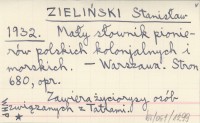 ZIELIŃSKI Stanisław
1932. Mały słownik pionie-
rów polskich kolonjalnych i
morskich. – Warszawa. Stron
680, opr.
Zawiera życiorysy osób
związanych z Tatrami.